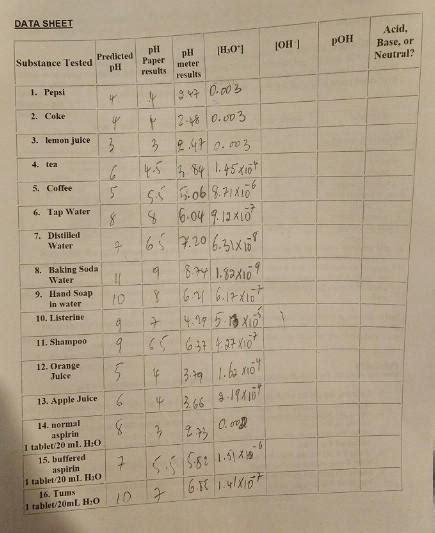 DATA SHEET
Substance Tested Predicted pH pH Paper results pH meter results [H₃O⁺] [OH⁻] pOH Acid, Base, or Neutral?
1. Pepsi 4 4 2.47 0.003
2. Coke 4 4 2.48 0.003
3. lemon juice 3 3 2.47 0.003
4. tea 6 4.5 3.84 1.45x10⁻⁴
5. Coffee 5 5.5 5.06 8.71x10⁻⁶
6. Tap Water 8 8 6.04 9.12x10⁻⁷
7. Distilled Water 7 6.5 7.20 6.31x10⁻⁸
8. Baking Soda Water 11 9 8.74 1.82x10⁻⁹
9. Hand Soap in water 10 8 6.21 6.17x10⁻⁷
10. Listerine 9 7 4.29
11. Shampoo 9 6.5 6.37 4.27x10⁻⁷
12. Orange Juice 5 4 3.79 1.62x10⁻⁴
13. Apple Juice 6 4 3.66 2.19x10⁻⁴
14. normal aspirin 1 tablet/20 mL H₂O 8 3 2.73 0.002
15. buffered aspirin 1 tablet/20 mL H₂O 7 5.5 5.82 1.51x10⁻⁶
16. Tums 1 tablet/20mL H₂O 10 7 1.41x10⁻⁷